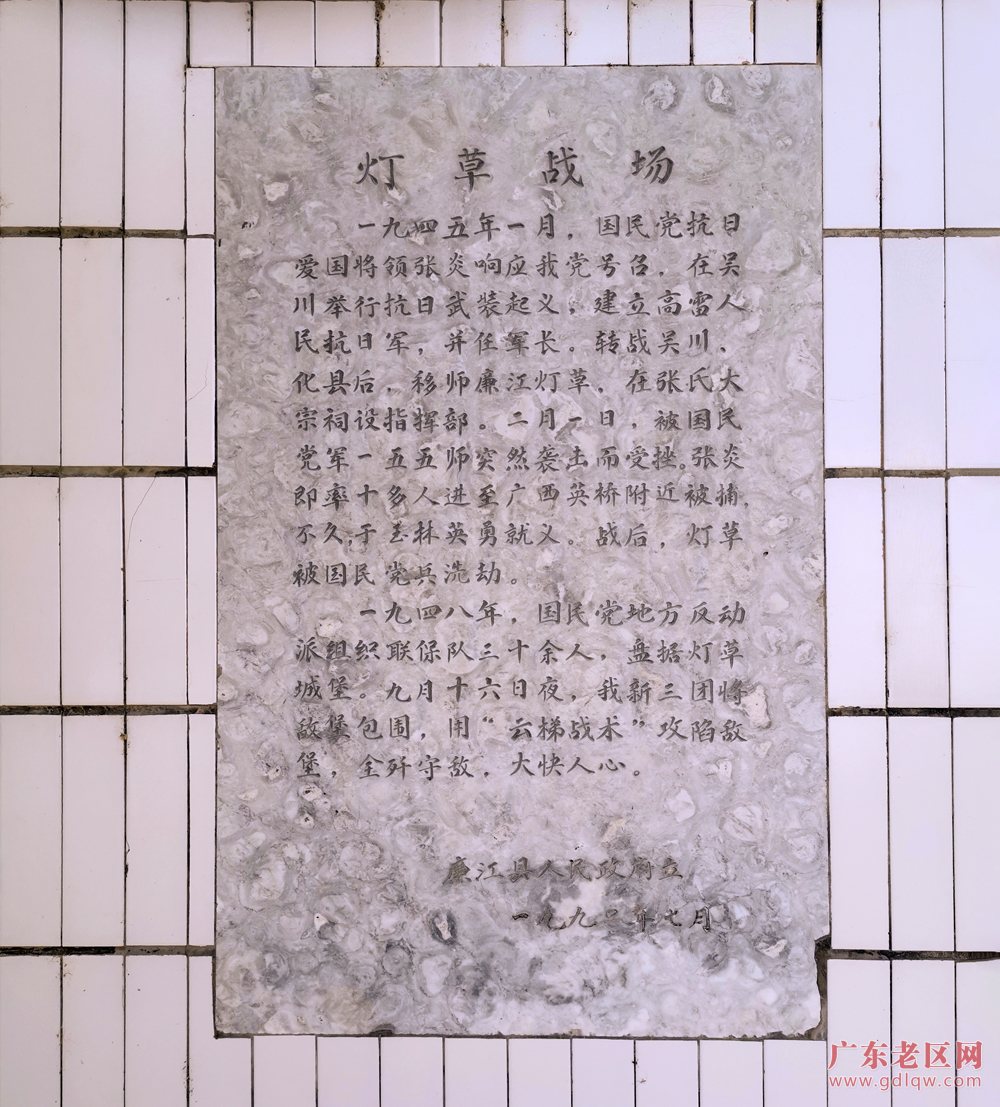 灯草战场
一九四五年一月，国民党抗日
爱国将领张炎响应我党号召，在吴
川举行抗日武装起义，建立高雷人
民抗日军，并任军长。转战吴川、
化县后，移师廉江灯草，在张氏大
宗祠设指挥部。二月一日，被国民
党军一五五师突然袭击而受挫。张炎
即率十多人进至广西英桥附近被捕，
不久，于玉林英勇就义。战后，灯草
被国民党兵洗劫。
一九四八年，国民党地方反动
派组织联保队三十余人，盘据灯草
城堡。九月十六日夜，我新三团将
敌堡包围，用“云梯战术”攻陷敌
堡，全歼守敌，大快人心。
廉江县人民政府立
一九九年七月
广东老区网
www.gdlqw.com